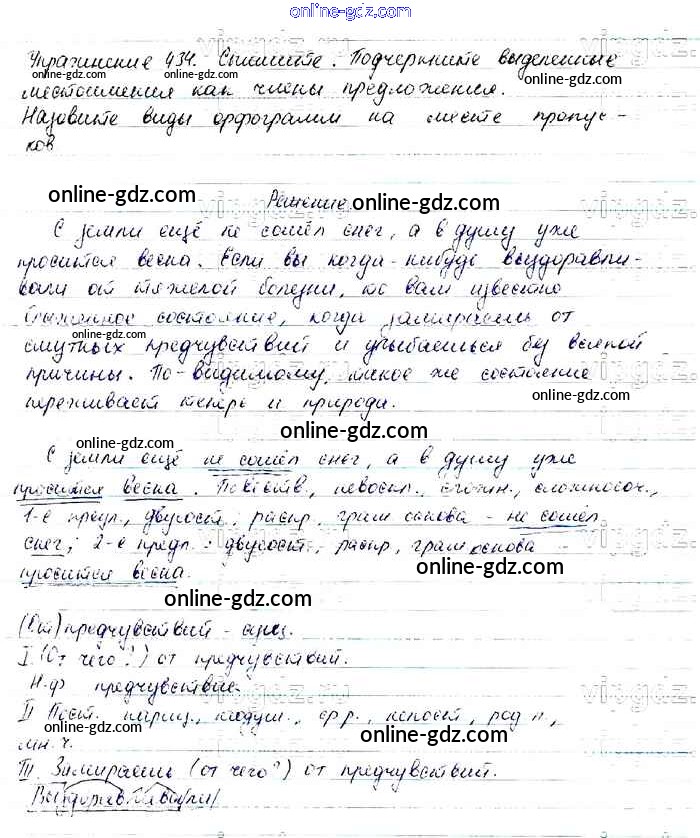 online-gdz.com
Упражнение 434. Спишите. Подчеркните выделенные
online-gdz.com
местоимения как члены предложения.
Назовите виды орфограмм на месте пропус-
ков
online-gdz.com
Решение
online-gdz.com
С земли ещё не сошёл снег, а в душу уже
просится весна. Если вы когда-нибудь выздоравли-
вали от тяжелой болезни, то вам известно
блаженное состояние, когда замираешь от
online-gdz.com
смутных предчувствий и улыбаешься без всякой
причины. По-видимому, такое же состояние
переживает теперь и природа.
online-gdz.com
online-gdz.com
С земли ещё не сошёл снег, а в душу уже
просится весна. Повеств., невоскл., сложн., сложносоч.,
1-е предл., двусост., распр., грам основа - не сошёл
снег; 2-е предл.: двусост., распр., грам основа
просится весна.
online-gdz.com
(От) предчувствий - сущ.
I. (От чего?) от предчувствий.
Н.ф предчувствие.
II Пост. нариц., неодуш., ср.р., непост, род п.,
мн.ч.
online-gdz.com
III. Замираешь (от чего?) от предчувствий.
online-gdz.com